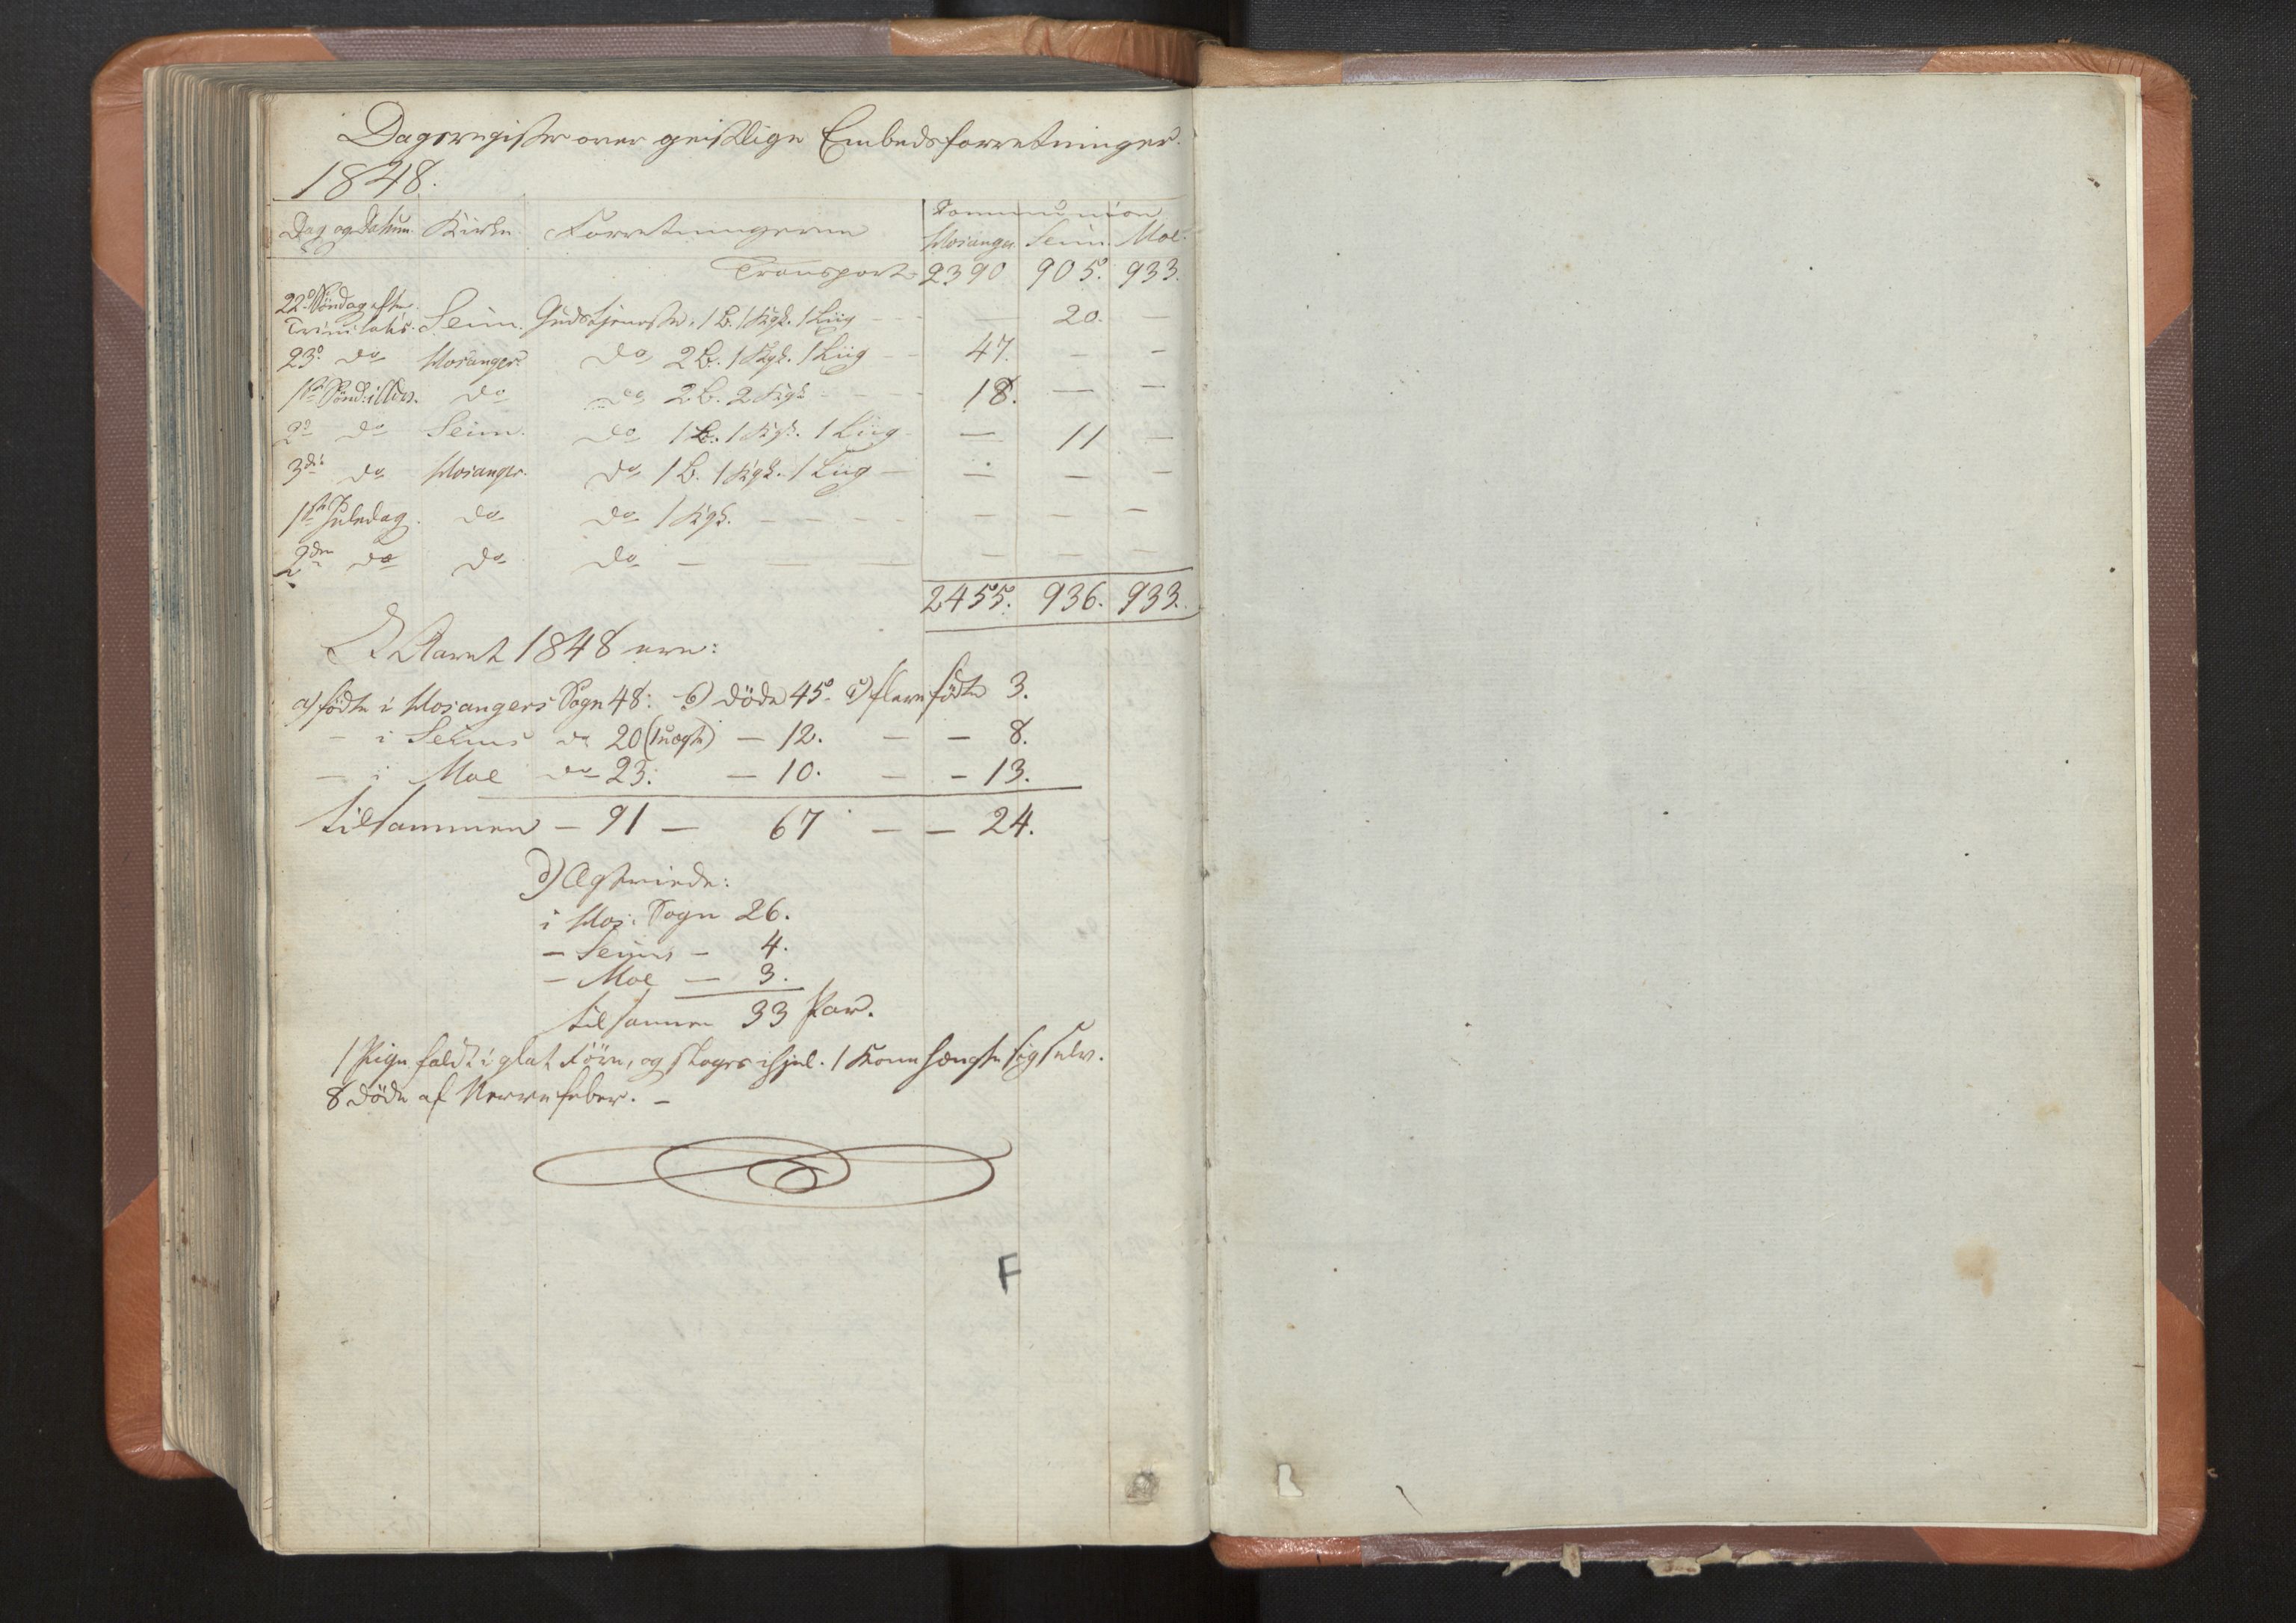 Dagsregister over geistlige Embedsforretninger.
1848.
Dag og Datum. Kirke. Forretningerne Communion
Hosanger Seim. Moe.
Transport 2390 905. 933.
22de Söndag efter
Trinitatis. Seim. Gudstjeneste. 1 B. 1 Kgk. 1 Liig — — 20. —
23de do Hosanger. do 2 B. 1 Kgk. 1 Liig — 47. — —
1ste Sönd: i Adv. do do 2 B. 2 Kgk — — — 18. — —
2den do Seim. do 1 B. 1 Kgk. 1 Liig — — 11 —
3die do Hosanger. do 1 B. 1 Kgk. 1 Liig — — — —
1ste Juledag. do do 1 Kgk. — — — — — — —
2den do do do — — — — — —
2455. 936. 933.
I Aaret 1848 ere:
a) födte i Hosangers Sogn 48: b) döde 45. c) flere födte 3.
— i Seims do 20 (1 uægte) — 12. — — 8.
— i Moe do 23. — 10. — — 13.
tilsammen — 91 — 67 — — 24.
d) Ægteviede:
i Hos: Sogn 26.
— Seims — 4.
— Moe — 3.
tilsammen 33 Par.
1 Pige faldt i glat Före, og sloges ihjel. 1 Kone hængte sig selv.
8 döde af Nervefeber. —
F